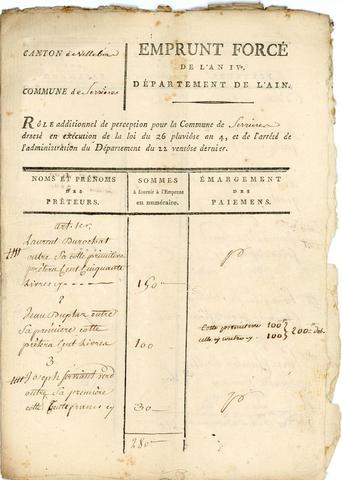 CANTON de Villebois
COMMUNE de Serrières
EMPRUNT FORCÉ
DE L'AN IVe.
DÉPARTEMENT DE L'AIN.
RÔLE additionnel de perception pour la Commune de Serrieres
dressé en exécution de la loi du 26 pluviôse an 4, et de l'arrêté de
l'administration du Département du 22 ventôse dernier.
NOMS ET PRÉNOMS
DES
PRÊTEURS.
SOMMES
à fournir à l'Emprunt
en numéraire.
ÉMARGEMENT
DES
PAIEMENS.
art. 1er.
Laurent Durochat
outre Sa cotte primitive
prêtera Cent Cinquante
Livres cy
150
2
Jean Duplan outre
Sa première cotte
prêtera Cent Livres
100
Cotte primitive 100
celle cy contre cy 100
200
3
Joseph
outre Sa première
cotte trente francs cy
30
280